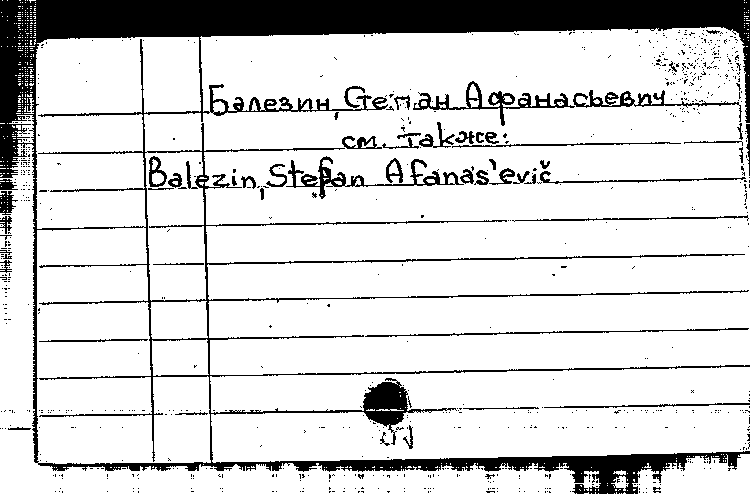 Балезин, Степан Афанасьевич
см. также:
Balezin, Stepan Afanas'evič